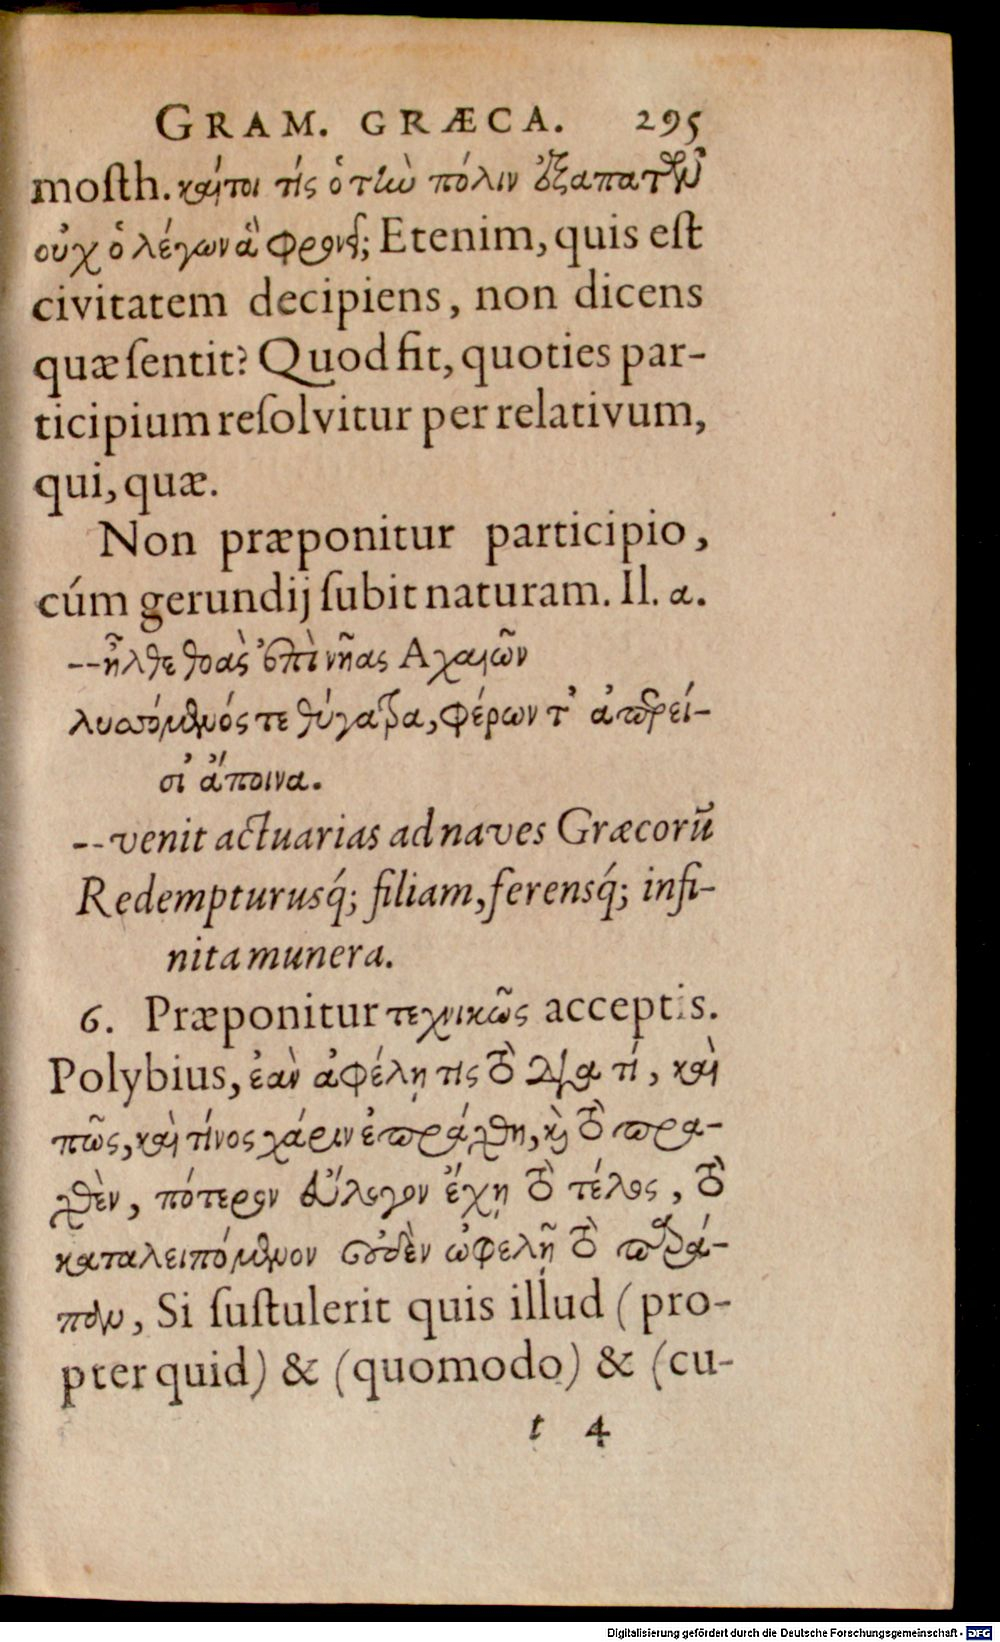 GRAM. GRÆCA. 295
moſth. καίτοι τίς ὁ τὴν πόλιν ἐξαπατῶν
οὐχ ὁ λέγων ἃ φρονεῖ; Etenim, quis eſt
civitatem decipiens, non dicens
quæ ſentit? Quod fit, quoties par-
ticipium reſolvitur per relativum,
qui, quæ.
Non præponitur participio,
cúm gerundij ſubit naturam. Il. α.
--ἦλθε θοὰς ἐπὶ νῆας Αχαιῶν
λυσόμενός τε θύγατρα, φέρων τ᾽ ἀπερεί-
σι᾽ ἄποινα.
--venit actuarias ad naves Græcorũ
Redempturusq́; filiam, ferensq́; infi-
nita munera.
6. Præponitur τεχνικῶς acceptis.
Polybius, ἐὰν ἀφέλῃ τις τὸ διὰ τί, καὶ
πῶς, καὶ τίνος χάριν ἐπράχθη, καὶ τὸ πρα-
χθὲν, πότερον εὔλογον ἔχῃ τὸ τέλος, τὸ
καταλειπόμενον οὐδὲν ὠφελῇ τὸ παρά-
παν, Si ſuſtulerit quis illud (pro-
pter quid) & (quomodo) & (cu-
t 4
Digitalisierung gefördert durch die Deutsche Forschungsgemeinschaft - DFG